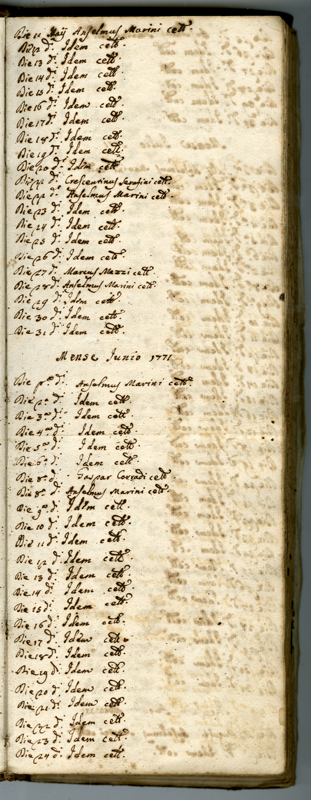 Die 11 Maij Anselmus Marini cett.
Die 12 d.i Idem cett.
Die 13 d.i Idem cett.
Die 14 d.i Idem cett.
Die 15 d.i Idem cett.
Die 16 d.i Idem cett.
Die 17 d.i Idem cett.
Die 18 d.i Idem cett.
Die 19 d.i Idem cett.
Die 20 d.i Idem cett.
Die 21 d.i Crescentinus Serafini cett.
Die 22 d.i Anselmus Marini cett.
Die 23 d.i Idem cett.
Die 24 d.i Idem cett.
Die 25 d.i Idem cett.
Die 26 d.i Idem cett.
Die 27 d.i Marcus Mazzi cett.
Die 28 d.i Anselmus Marini cett.
Die 29 d.i Idem cett.
Die 30 d.i Idem cett.
Die 31 d.i Idem cett.
Mense Junio 1771
Die p.a d.i Anselmus Marini cett.
Die 2.a d.i Idem cett.
Die 3.a d.i Idem cett.
Die 4.a d.i Idem cett.
Die 5.a d.i Idem cett.
Die 6.a d.i Idem cett.
Die d.i Gaspar Corradi cett.
Die 8.a d.i Anselmus Marini cett.
Die 9.a d.i Idem cett.
Die 10 d.i Idem cett.
Die 11 d.i Idem cett.
Die 12 d.i Idem cett.
Die 13 d.i Idem cett.
Die 14 d.i Idem cett.
Die 15 d.i Idem cett.
Die 16 d.i Idem cett.
Die 17 d.i Idem cett.
Die 18 d.i Idem cett.
Die 19 d.i Idem cett.
Die 20 d.i Idem cett.
Die 21 d.i Idem cett.
Die 22 d.i Idem cett.
Die 23 d.i Idem cett.
Die 24 d.i Idem cett.